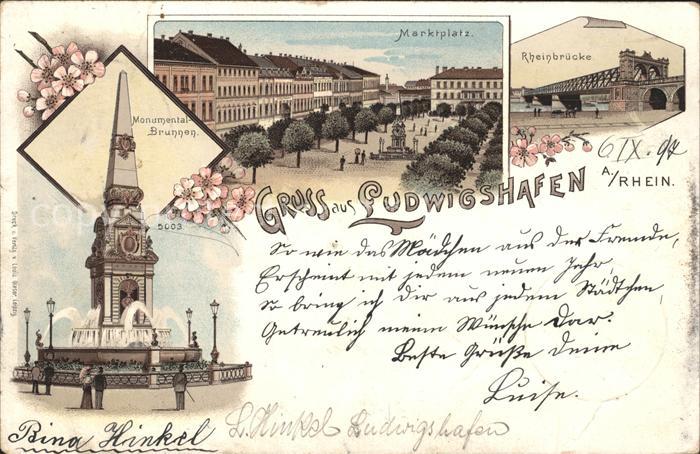 Marktplatz.
Rheinbrücke
Monumental-
Brunnen.
6 IX. 97
GRUSS aus LUDWIGSHAFEN
A./RHEIN.
5003
So wie das Mädchen aus der Fremde,
Erscheint mit jedem neuen Jahr,
So bring ich dir aus jedem Städtchen,
Getreulich meine Wünsche dar.
Beste Grüße deine
Luise.
Bina Hinkel
L. Hinkel Ludwigshafen